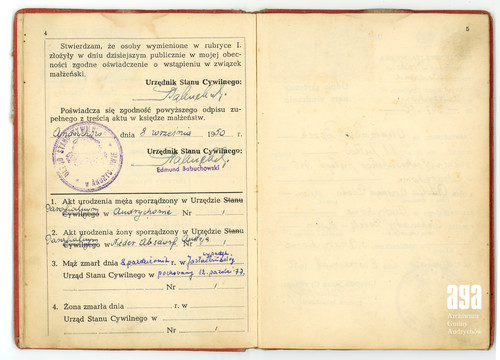 4
Stwierdzam, że osoby wymienione w rubryce I.
złożyły w dniu dzisiejszym publicznie w mojej obec-
ności zgodne oświadczenie o wstąpieniu w związek
małżeński.
Urzędnik Stanu Cywilnego:
Babuchowski
Poświadcza się zgodność powyższego odpisu zu-
pełnego z treścią aktu w księdze małżeństw.
Andrychów dnia 8 września 1950 r.
Urzędnik Stanu Cywilnego:
Babuchowski
Edmund Babuchowski
1. Akt urodzenia męża sporządzony w Urzędzie Stanu
Parafialnym
Cywilnego w Andrychowie Nr
2. Akt urodzenia żony sporządzony w Urzędzie Stanu
Parafialnym
Cywilnego w Nieder Absdorf Austrja Nr
3. Mąż zmarł dnia 8 października r. w
Urząd Stanu Cywilnego w pochowany 12. paźdz. 77.
Nr
4. Żona zmarła dnia r. w
Urząd Stanu Cywilnego w
Nr
5
aga
Archiwum
Gminy
Andrychów